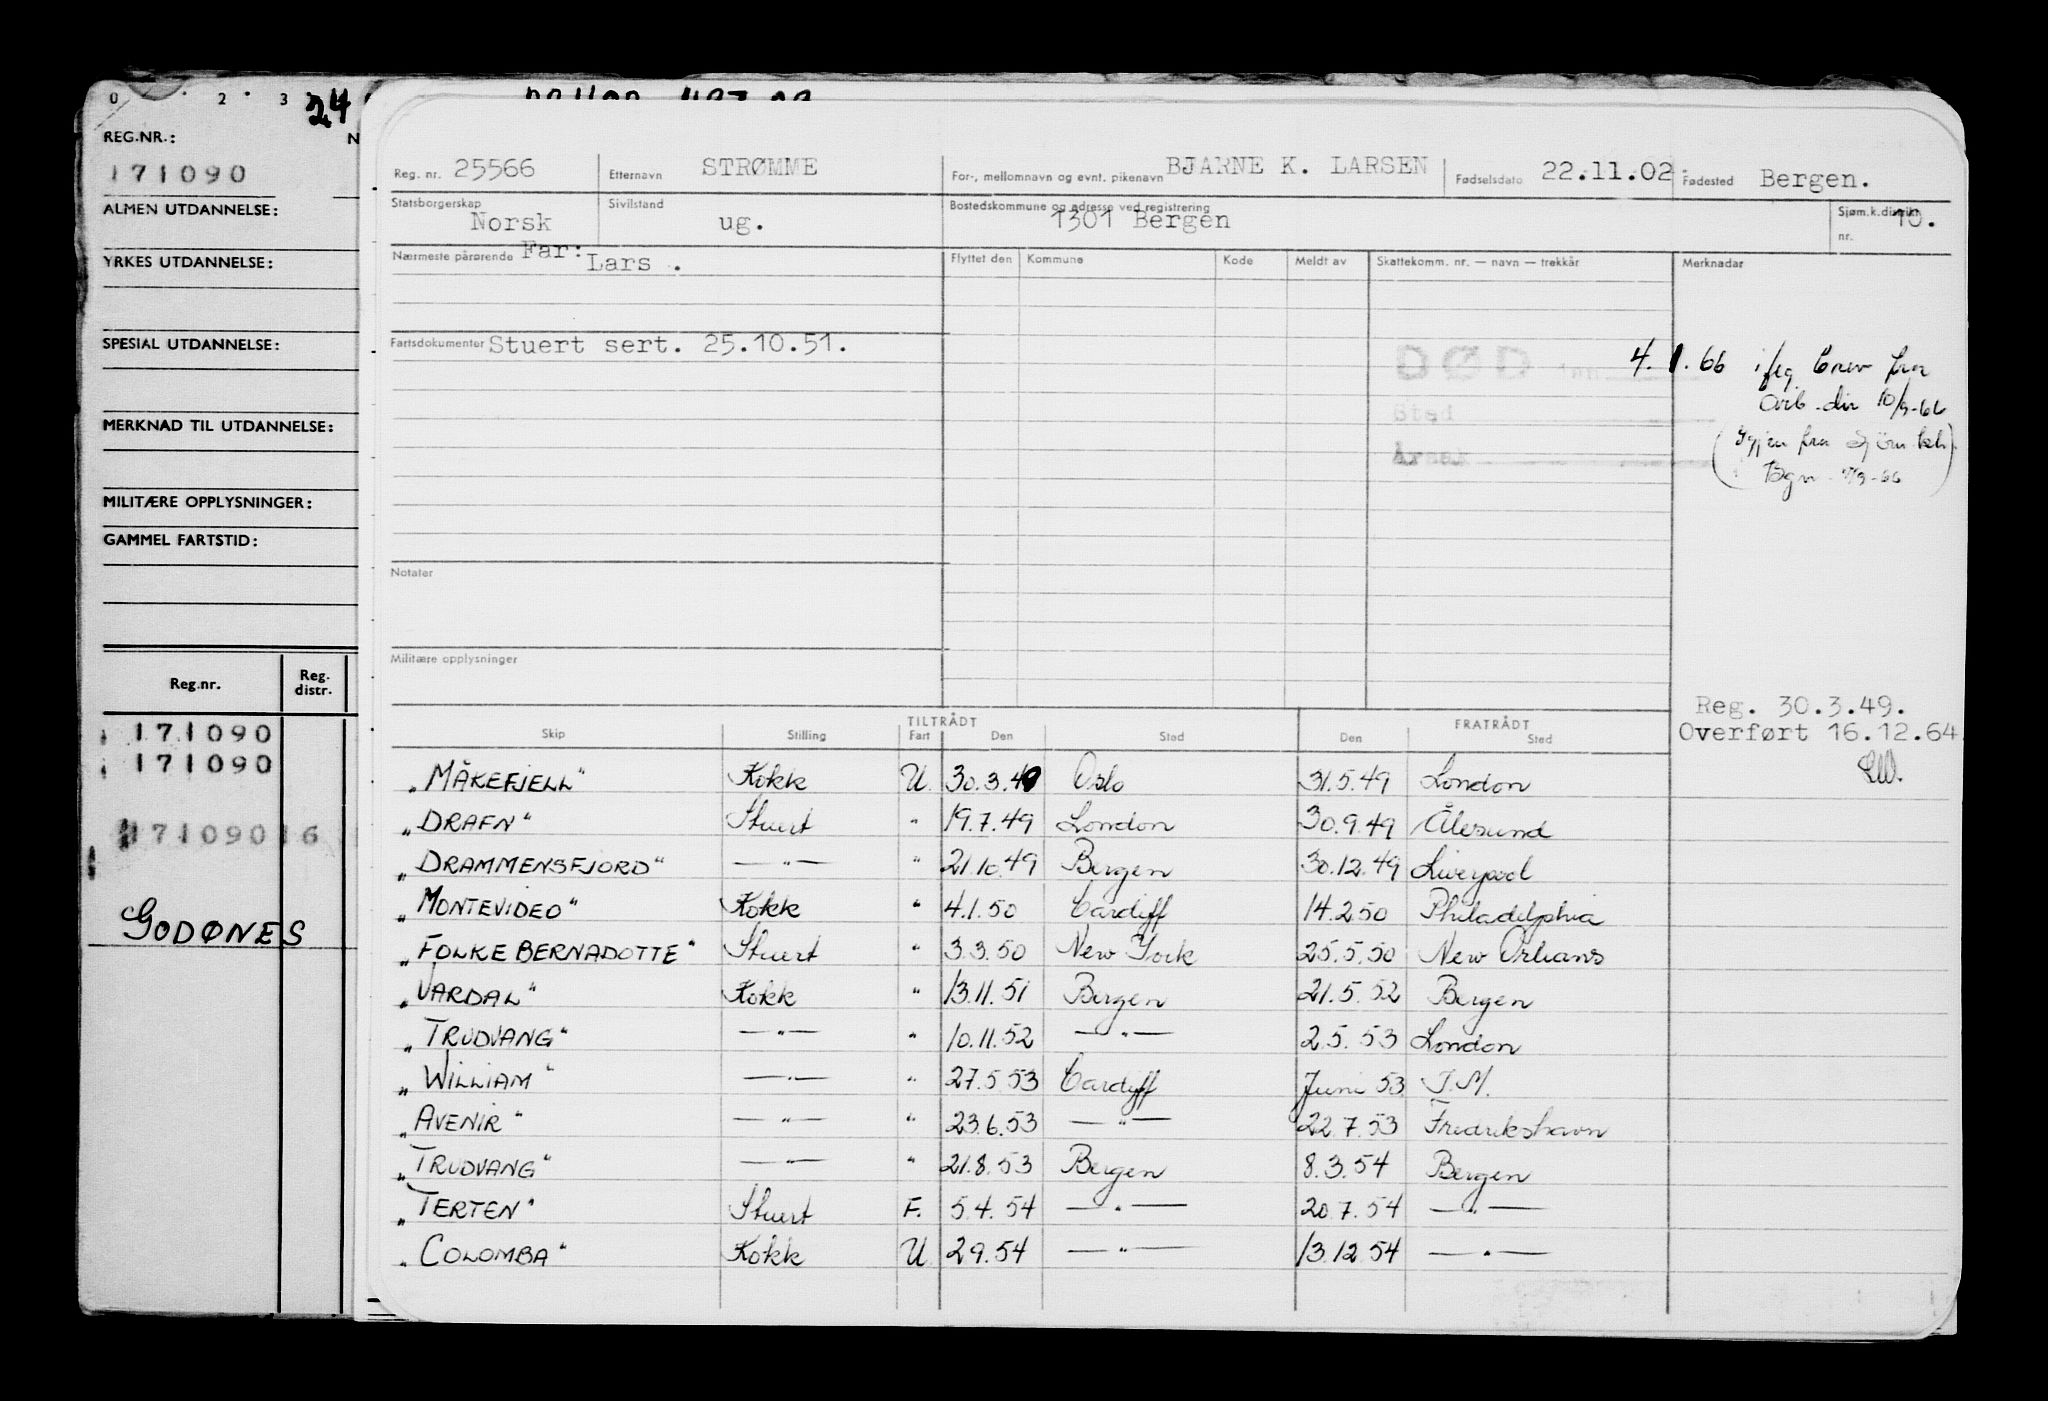 0 2 3 24
REG.NR.: N
171090
ALMEN UTDANNELSE:
YRKES UTDANNELSE:
SPESIAL UTDANNELSE:
MERKNAD TIL UTDANNELSE:
MILITÆRE OPPLYSNINGER:
GAMMEL FARTSTID:
Reg.nr. Reg. distr.
171090
171090
17109016
GODØNES
Reg. nr. 25566 Etternavn STRØMME For-, mellomnavn og evnt. pikenavn BJARNE K. LARSEN Fødselsdato 22.11.02. Fødested Bergen.
Statsborgerskap Norsk Sivilstand ug. Bostedskommune og adresse ved registrering 1301 Bergen Sjøm.k.distrikt nr. 10.
Nærmeste pårørende Far: Lars . Flyttet den Kommune Kode Meldt av Skattekomm. nr. — navn — trekkår Merknader
Fartsdokumenter Stuert sert. 25.10.51.
DØD den 4.1.66 ifлg. brev fra
Sted Arb.dir 10/9-66
Årsak (Igjen fra
Notater
Militære opplysninger
Reg. 30.3.49.
Overført 16.12.64
TILTRÅDT FRATRÅDT
Skip Stilling Fart Den Sted Den Sted
„MÅKEFJELL" Kokk U 30.3.49 Oslo 31.5.49 London
„DRAFN" Stuert " 19.7.49 London 30.9.49 Ålesund
„DRAMMENSFJORD" —"— " 21.10.49 Bergen 30.12.49 Liverpool
„MONTEVIDEO" Kokk " 4.1.50 Cardiff 14.2.50 Philadelphia
„FOLKE BERNADOTTE" Stuert " 3.3.50 New York 25.5.50 New Orleans
„VARDAL" Kokk " 13.11.51 Bergen 21.5.52 Bergen
„TRUDVANG" —"— " 10.11.52 —"— 2.5.53 London
„WILLIAM" —"— " 27.5.53 Cardiff Juni 53
„AVENIR" —"— " 23.6.53 —"— 22.7.53 Fredrikshavn
„TRUDVANG" —"— " 21.8.53 Bergen 8.3.54 Bergen
„TERTEN" Stuert F. 5.4.54 —"— 20.7.54 —"—
„COLOMBA" Kokk U 2.9.54 —"— 13.12.54 —"—